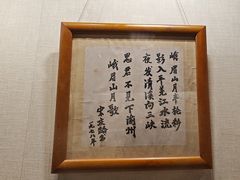 峨眉山月半轮秋
影入平羌江水流
夜发清溪向三峡
思君不见下渝州
峨眉山月歌
一九七八年